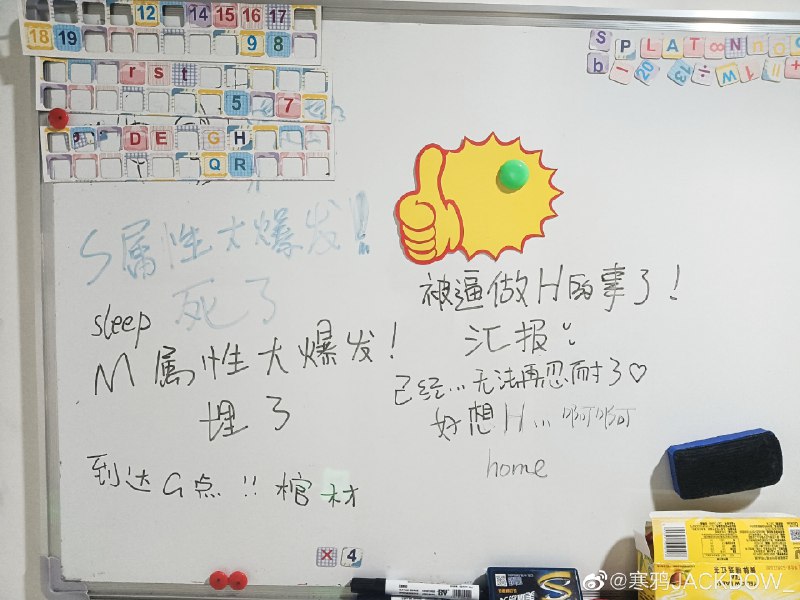 12 14 15 16 17
18 19 9 8
r s t
5 7
D E G H
Q R
S P L A T ∞ N
b 1 20 13 ÷ W 1 = +
S属性大爆发!
死了
sleep
M属性大爆发!
埋了
到达G点!!棺材
被逼做H的事了!
汇报:
已经…无法再忍耐了♡
好想H…啊啊
home
× 4
@寒鸦JACKDOW_